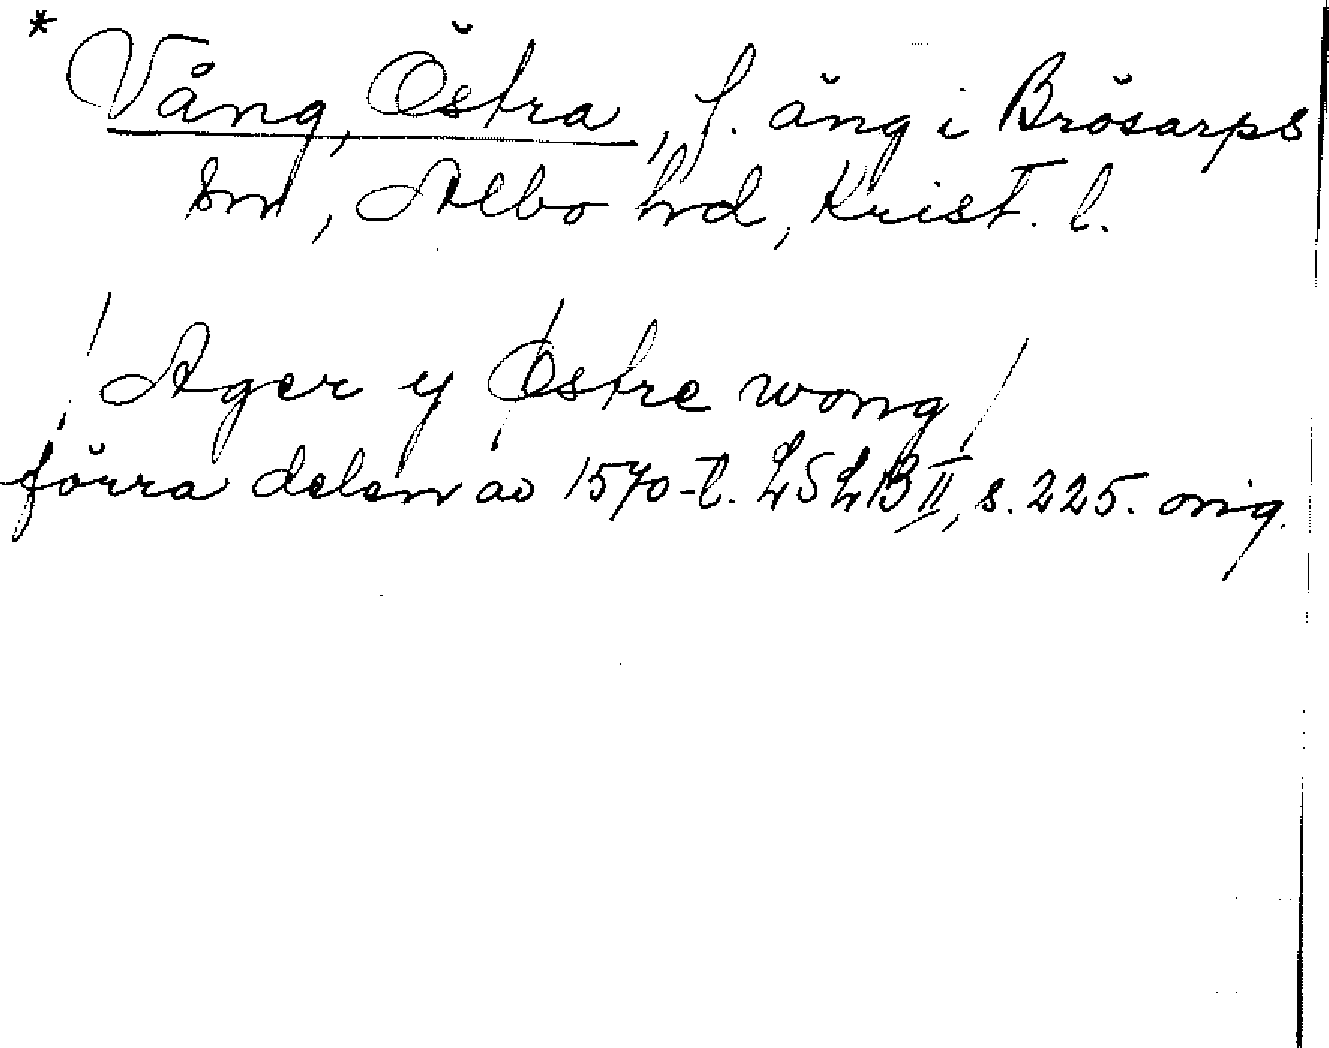 * Vång, Östra, f. äng i Brösarps
sn, Albo hd, Krist. l.
/: Ager y Østre wong /
förra delen av 1570-t. LSLB II, s. 225. orig.